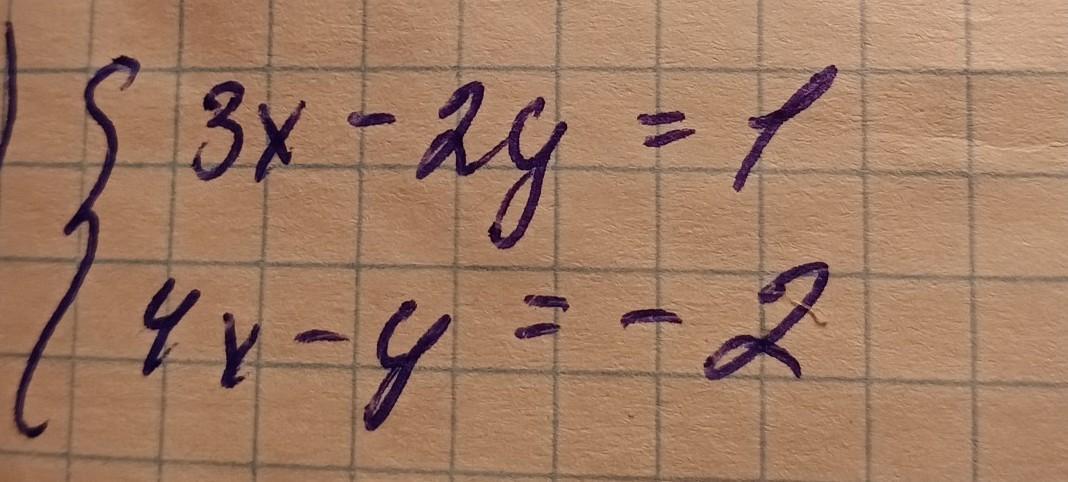 3x - 2y = 1
4x - y = - 2